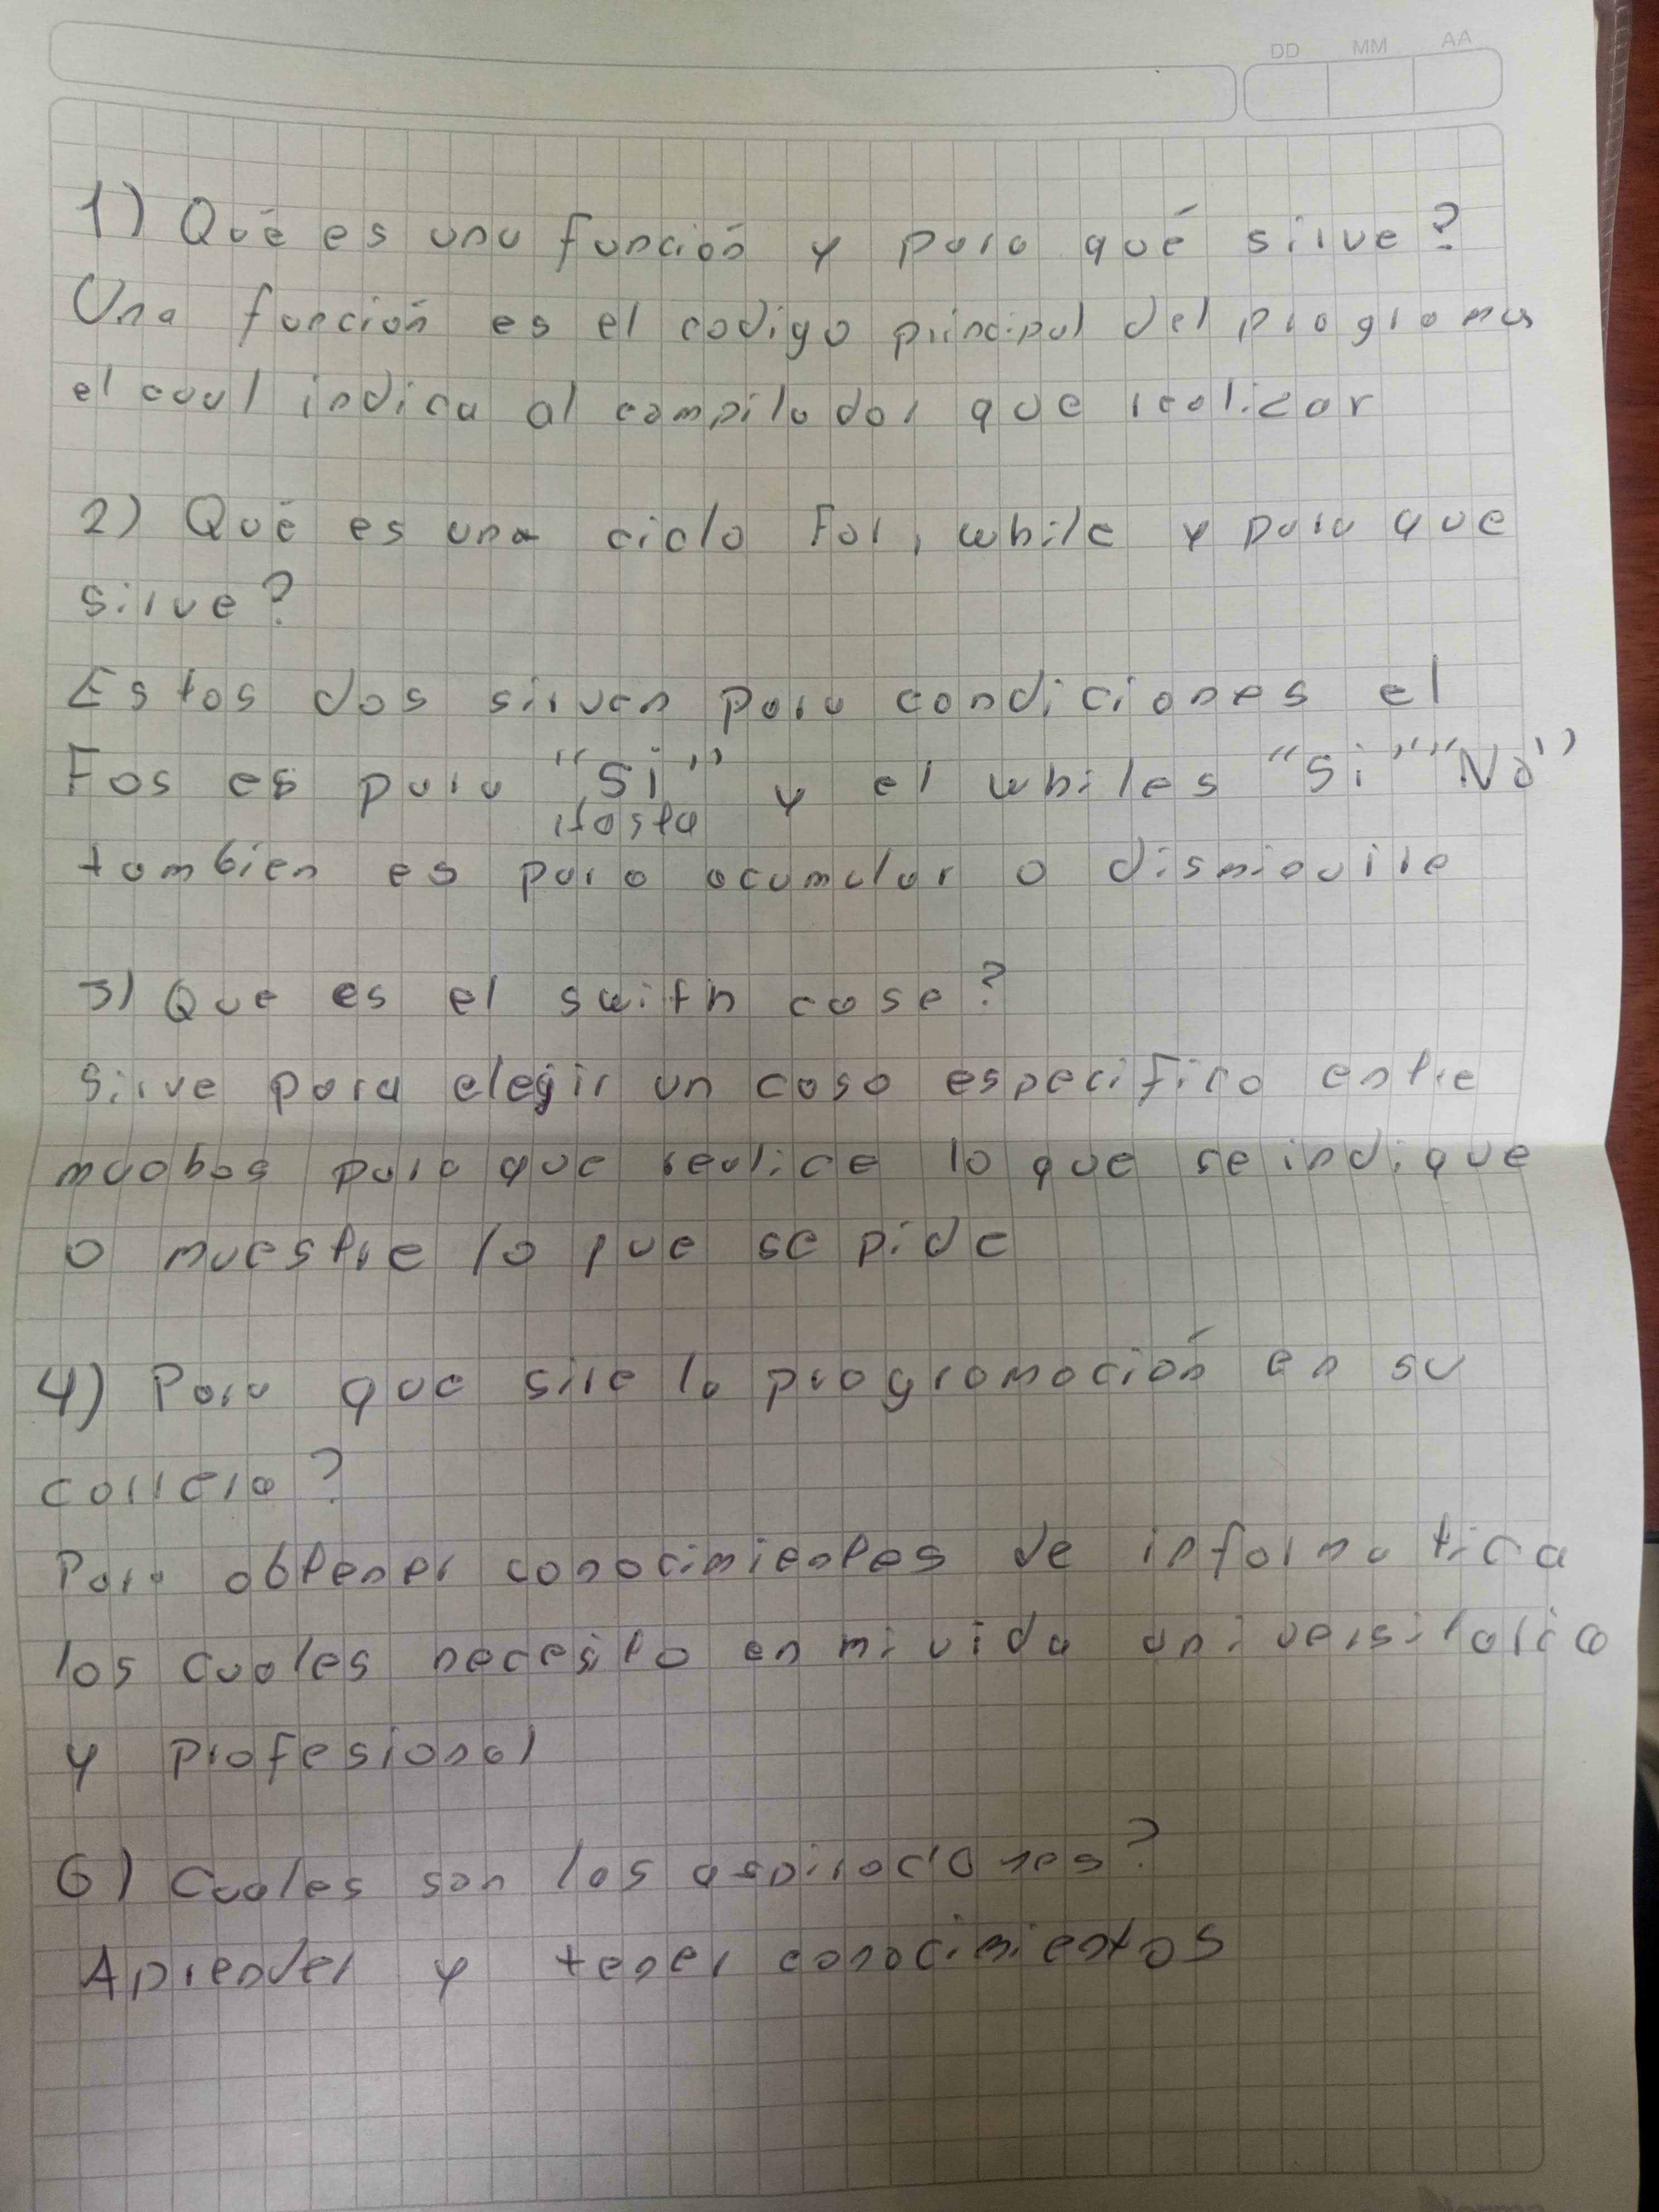 DD MM AA
1) Qué es una función y para qué sirve?
Una función es el codigo principal del programa
el cual indica al compilador que realizar
2) Qué es una ciclo For, while y para que
sirve?
Estos dos sirven para condiciones el
Fos es para "Si" y el whiles "Si" "No"
Hasta
tambien es para acumular o disminuire
3) Que es el swith case?
Sirve para elegir un caso especifico entre
muchos para que realice lo que se indique
o muestre lo que se pide
4) Para que sire la programación en su
carrera?
Para obtener conocimientos de informatica
los cuales necesito en mi vida universitaria
y profesional
6) Cuales son las aspiraciones?
Aprender y tener conocimientos